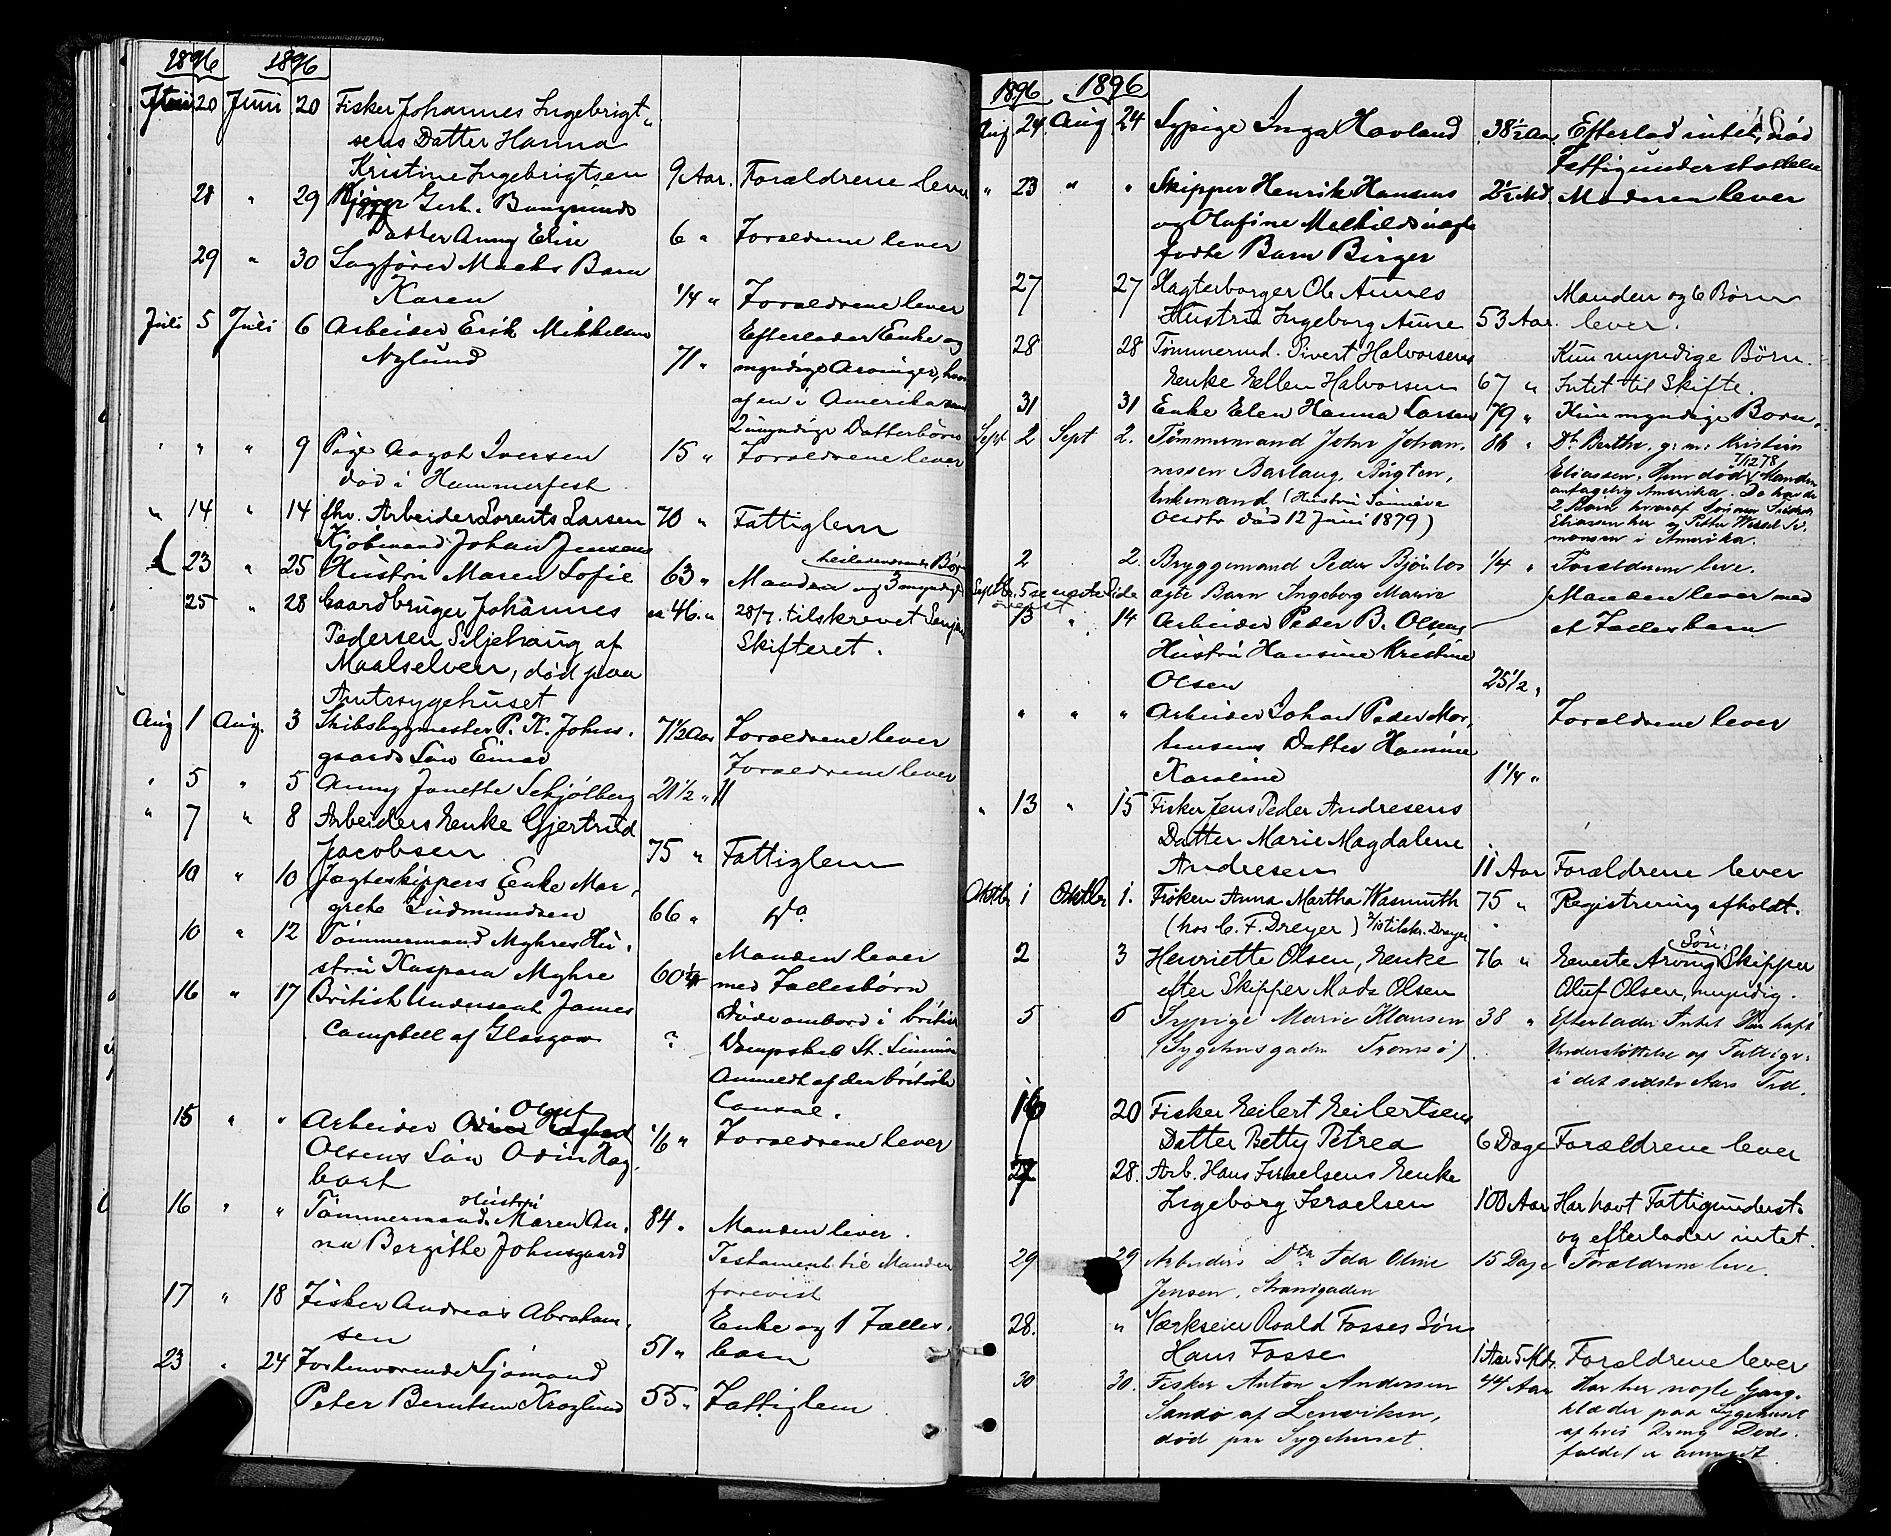 1896 1896
Juni 20 Juni 20 Fisker Johannes Ingebrigt-
sens Datter Hanna
Kristine Ingebrigtsen 9 Aar. Forældrene lever
28 " 29 Gerh.
Datter Anny Elise 6 " Forældrene lever
29 " 30 Sagfører Macks Barn
Karen 1/4 " Forældrene lever
Juli 5 Juli 6 Arbeider Erik Mikkelsen
Nylund 71 " Efterlader Enke og
myndige Arvinger, hvor
af en i Amerika samt
2 umyndige Datterbørn
" " " 9 Pige Aagot Iversen 15 " Forældrene lever
død i Hammerfest
" 14 " 14 fhv. Arbeider Lorents Larsen 70 " Fattiglem
Kjøbmand Johan Jensens
23 " 25 Hustru Maren Sofie 63 " Manden og 3 myndige
25 " 28 Gaardbruger Johannes 46 " 28/7. tilskrevet Senjen
Pedersen Siljehaug af Skifteret.
Maalselven, død paa
Amtssygehuset
Aug 1 Aug. 3 Skibsbygmester P. K. Johns-
gaards Søn Einar 7 1/2 Aar Forældrene lever
" 5 " 5 Anny Janette Schjølberg 21 1/2 " Forældrene lever
" 7 " 8 Arbeiders Enke Gjertrud
Jacobsen 75 " Fattiglem
10 " 10 Jagteskippers Enke Mar-
grete Gudmundsen 66 " Do
10 " 12 Tømmermand Myhres Hu-
stru Kaspara Myhre 60 1/4 Manden lever
med Fællesbørn
16 " 17 British Undersaat James
Campbell af Glasgow ? Døde ombord i britisk
Dampskib St.
Anmeldt af den britiske
Consul.
15 " " Arbeider Oluf
Olsens Søn Odin Dag-
bart 1/6 " Forældrene lever
16 " " Tømmermands Hustru Maren An-
na Bergithe Johnsgaard 84 " Manden lever.
Testament til Manden
forevist
17 " 18 Fisker Andreas Abraham-
sen 51 " Enke og 1 Fælles-
barn
23 " 24 Forhenværende Sjømand
Peter Berntsen Kroglund 55 " Fattiglem
1896 1896
46
Aug 24 Aug 24 Sypige Inga Havland 38 1/2 Aar Efterlod intet, nød
Fattigunderstøttelse
" 23 " " Skipper Henrik Hansens 2 1/2 Md. Moderen lever
og Olufine Methilds uægte
fødte Barn Birger
27 27 Hagterborger Ole Aunes
Hustru Ingeborg Aune 53 Aar. Manden og 6 Børn
lever.
28 28 Tømmermd. Sivert Halvorsens
Enke Ellen Halvorsen 67 " Kun myndige Børn.
Intet til Skifte.
31 31 Enke Elen Hanna Larsen 79 " Kun myndige Børn.
Sept 2 Sept 2. Tømmermand John Johan-
nessen Barlaug, 86 " Dt. Berthe, g. m. Kristian
Eliassen, Hun død 7/12 78 Manden
antagelig Amerika. De har
Enkemand (Hustru
død 12 Juni 1879) 2 Børn hvoraf
Eliassen her og Petter Wessel Si-
monsen i Amerika.
2 2. Bryggemand Peder Bjönlos 1/4 " Forældrene leve.
ægte Barn Ingeborg Marie
Septbr. 5 se næste Side øverst
13 " 14 Arbeider Peder B. Olsens Manden lever med
Hustru Hansine Kristine et Fællesbarn
Olsen 25 1/2 "
" " " Arbeider Johan Peder Mor-
tensens Datter Hansine Forældrene lever
Karoline 1 1/4 "
" 13 " 15 Fisker Jens Peder Andresens
Datter Marie Magdalene
Andresen 11 Aar Forældrene lever
Oktbr 1 Oktbr 1. Frøken Anna Martha Wasmuth 75 " Registrering afholdt.
(hos C. F. Dreyer) 2/10 tilskr. Dreyer
2 3 Henriette Olsen, Enke 76 " Eneste Arving Søn: Skipper
efter Skipper Mads Olsen Oluf Olsen, myndig.
5 6 Sypige Marie Klausen 38 " Efterlader Intet Har haft
(Sygehusgaden Tromsø) Understøttelse af Fattigv.
i det sidste Aars Tid.
16 20 Fisker Eilert Eilertsens
Datter Betty Petrea 6 Dage Forældrene lever
27 28. Arb. Hans Israelsens Enke
Ingeborg Israelsen 100 Aar Har havt Fattigunderst.
og efterlader intet.
29 29 Arbeiders Dtr. Ida Oline 15 Dage Forældrene leve.
Jensen, Strandgaden
28. " Værkseier Roald Fosses Søn
Hans Fosse 1 Aar 5 Md. Forældrene lever
30 30. Fisker Anton Andersen 44 Aar Har her nogle Gang-
Sandø af Lenviken, klæder paa Sygehuset
død paa Sygehuset. af hvis Dreng Døds-
faldet er anmeldt.